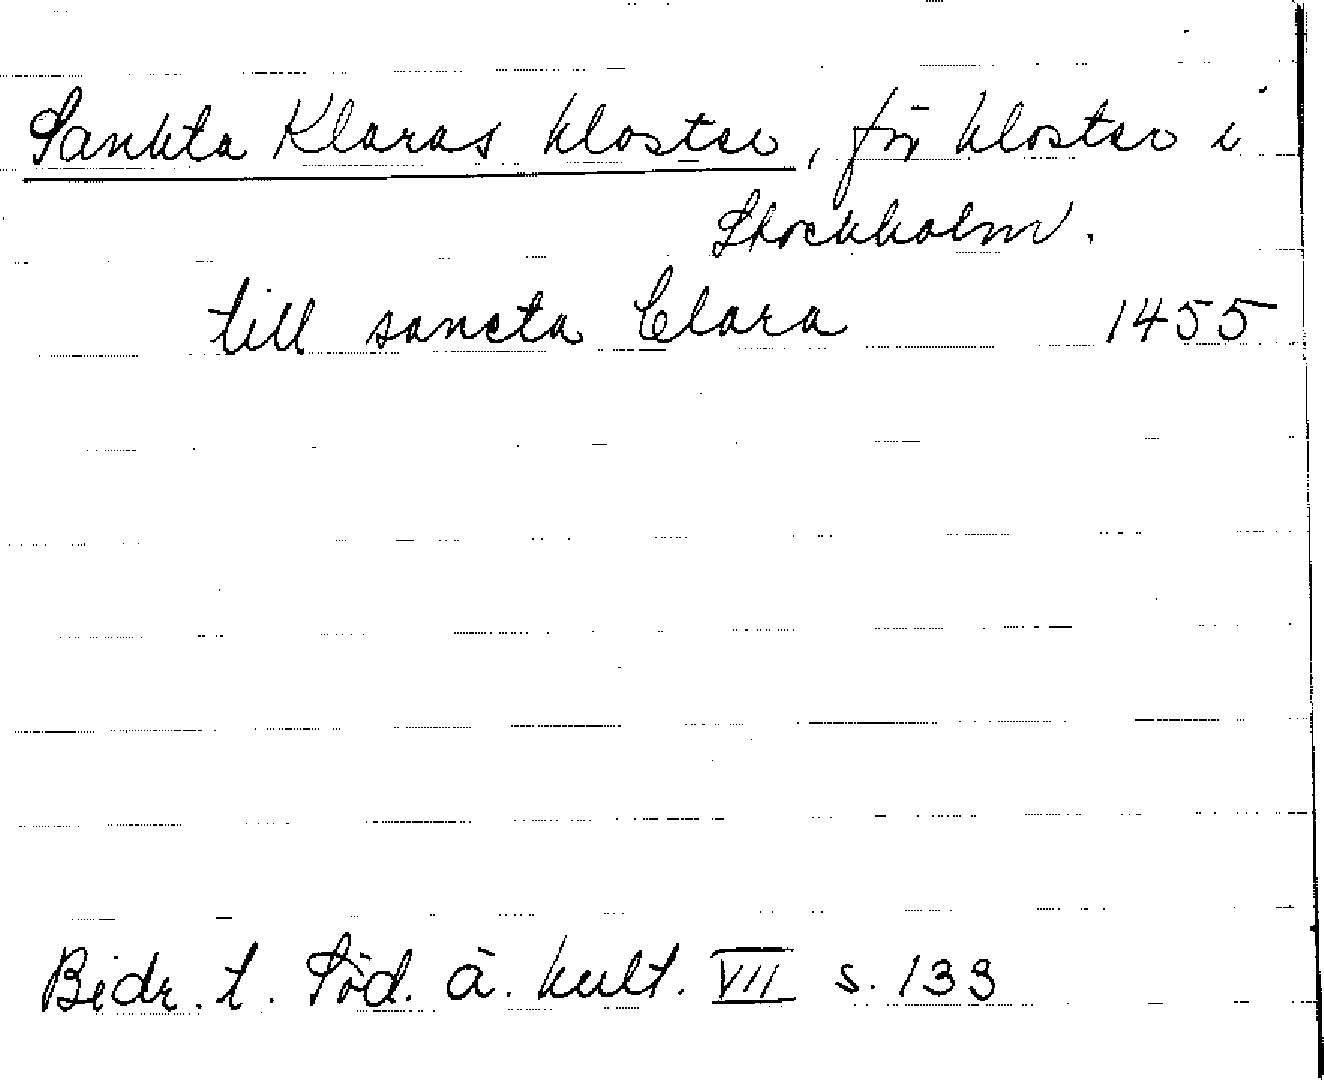 Sankta Klaras kloster, för kloster i
Stockholm.
till sancta Clara 1455
Bidr. t. Söd. ä. kult. VII s. 133